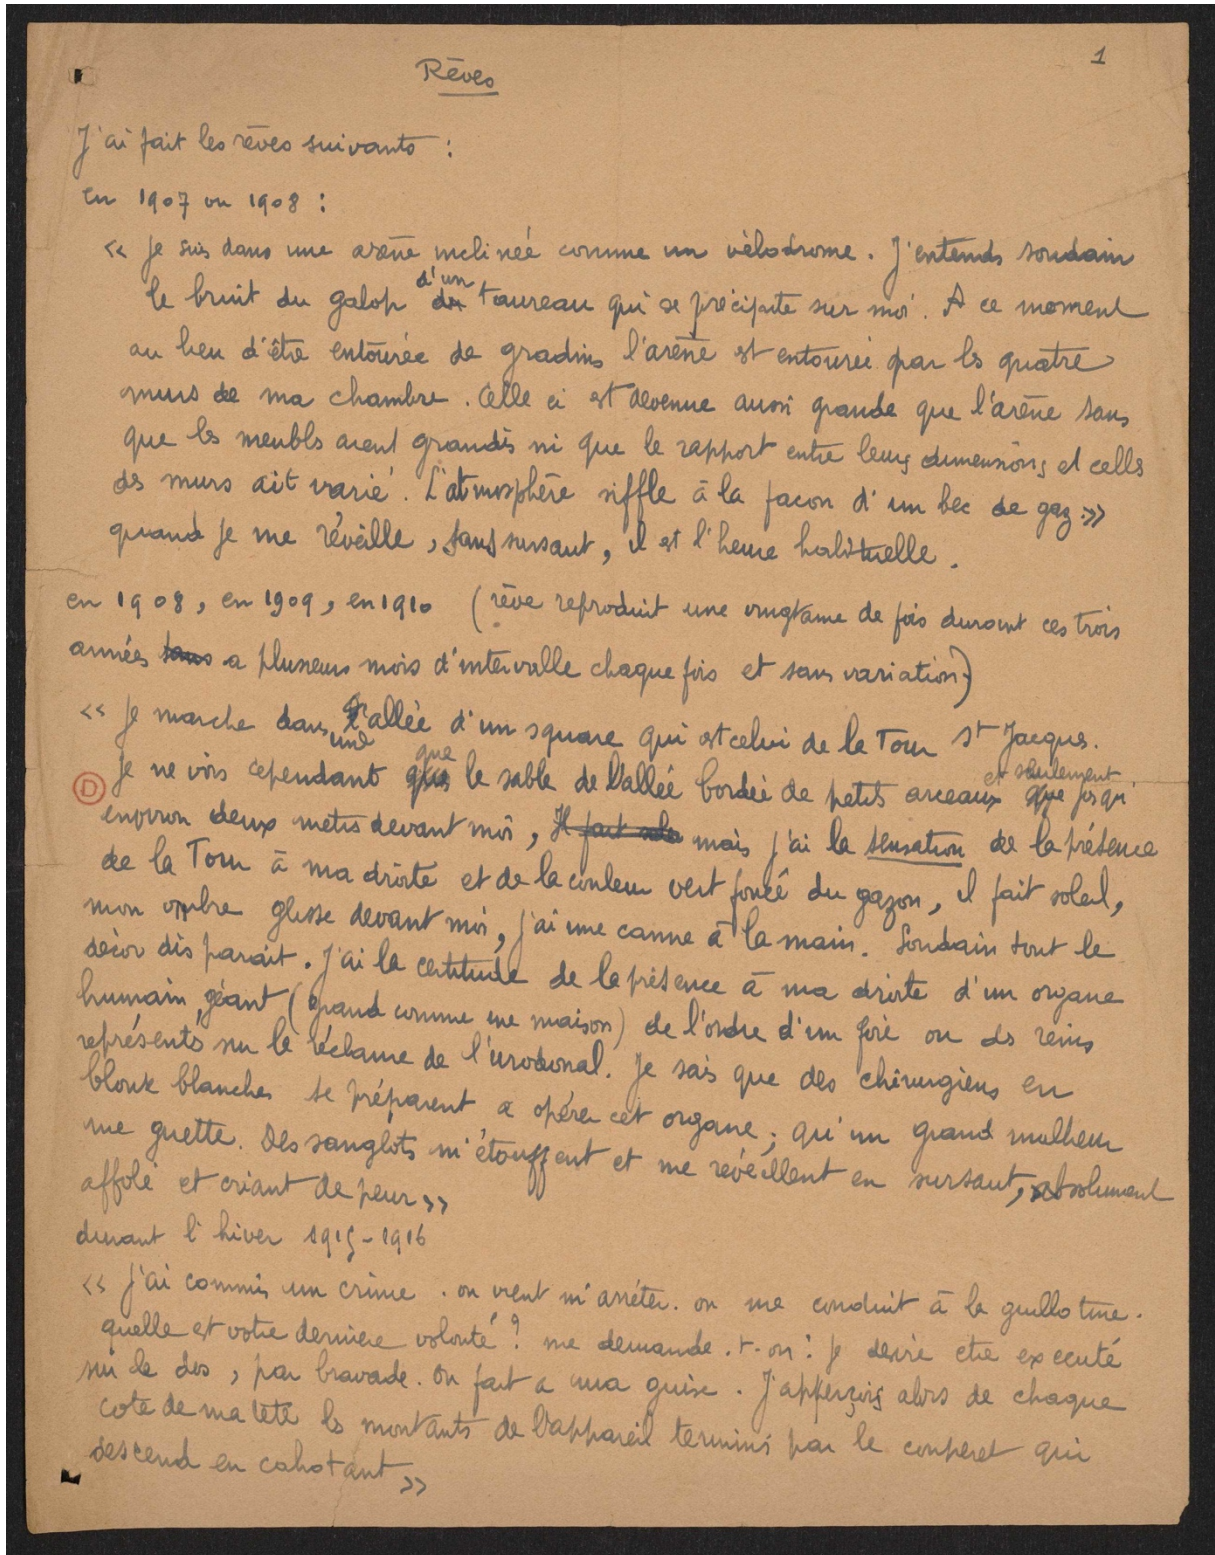 1
Rêves
J'ai fait les rêves suivants :
en 1907 ou 1908 :
« Je suis dans une arène inclinée comme un vélodrome. J'entends soudain
le bruit du galop d'un taureau qui se précipite sur moi. A ce moment
au lieu d'être entourée de gradins l'arène est entourée par les quatre
murs de ma chambre. Celle ci est devenue aussi grande que l'arène sans
que les meubles aient grandis ni que le rapport entre leurs dimensions et celles
des murs ait varié. L'atmosphère siffle à la façon d'un bec de gaz. »
quand je me réveille, sans sursaut, il est l'heure habituelle.
en 1908, en 1909, en 1910 (rêve reproduit une vingtaine de fois durant ces trois
années a plusieurs mois d'intervalle chaque fois et sans variation)
« Je marche dans une allée d'un square qui est celui de la Tour St Jacques.
Je ne vois cependant que le sable de l'allée bordée de petits arceaux et seulement jusqu'
D
environ deux mètres devant moi, mais j'ai la sensation de la présence
de la Tour à ma droite et de la couleur vert foncé du gazon, il fait soleil,
mon ombre glisse devant moi, j'ai une canne à la main. Soudain tout le
décor disparait. J'ai la certitude de la présence à ma droite d'un organe
humain, géant (grand comme une maison) de l'ordre d'un foie ou des reins
représentés sur la réclame de l'urodonal. Je sais que des chirurgiens en
blouse blanches se préparent a opérer cet organe ; qu'un grand malheur
me guette. Des sanglots m'étouffent et me réveillent en sursaut, absolument
affolé et criant de peur »
durant l'hiver 1915-1916
« J'ai commis un crime. on vient m'arrêter. on me conduit à la guillotine.
quelle est votre dernière volonté ? me demande.t-on : je désire être executé
sur le dos, par bravade. On fait a ma guise. J'apperçois alors de chaque
coté de ma tête les montants de l'appareil terminés par le couperet qui
descend en cahotant »